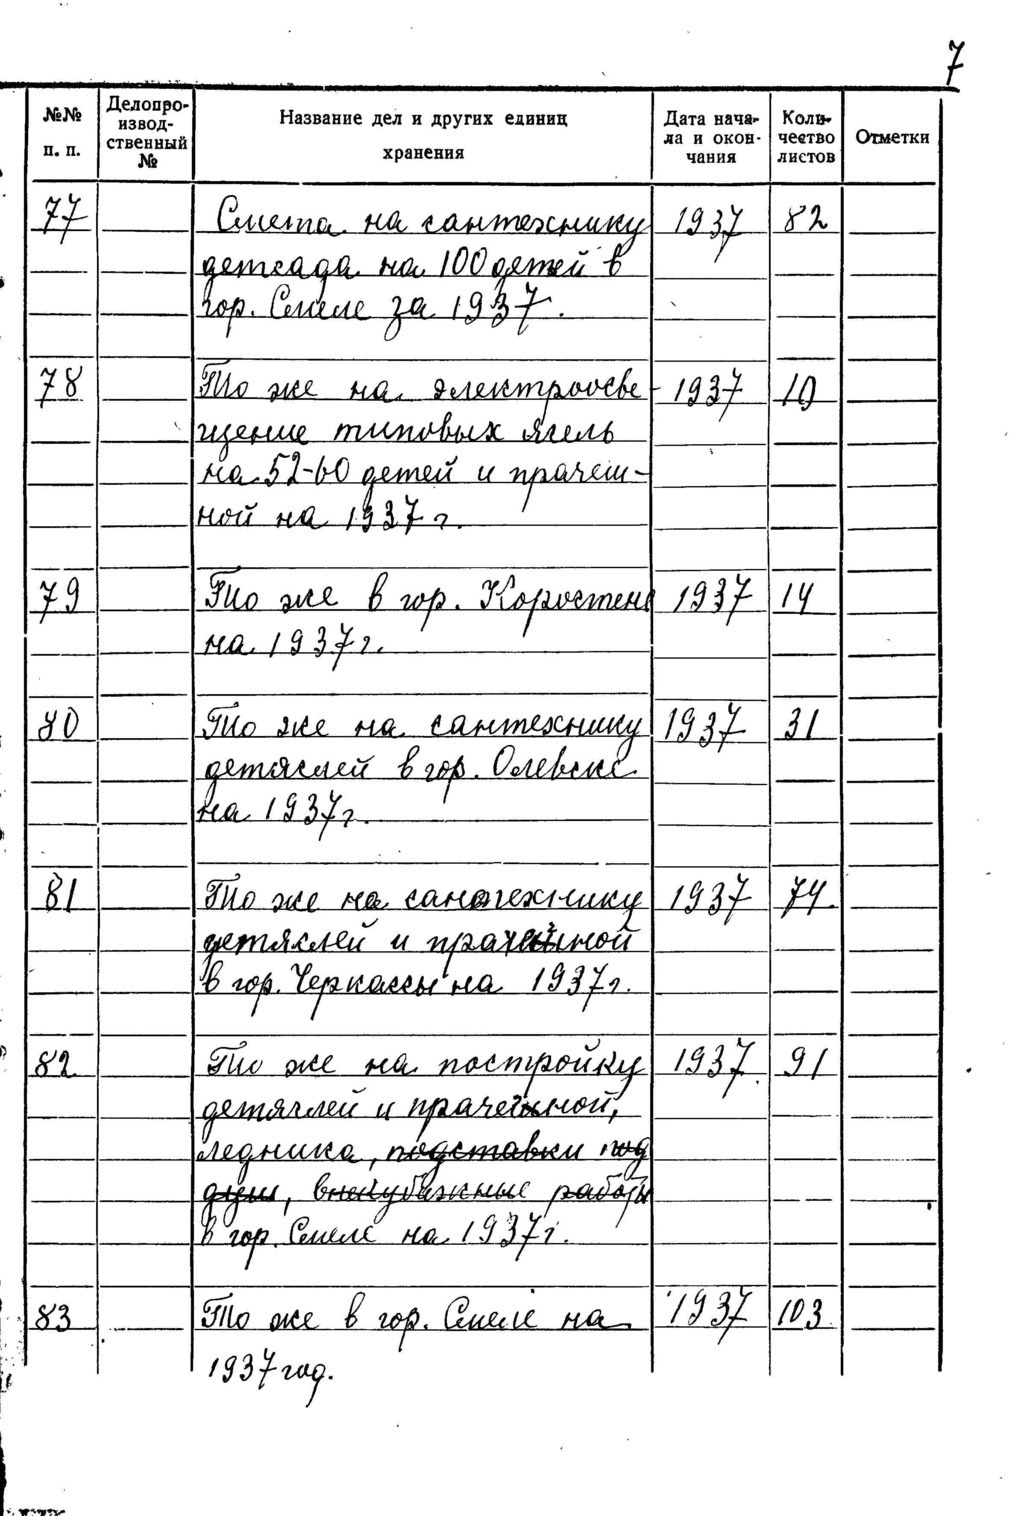 7
№№ п. п.
Делопро-
извод-
ственный
№
Название дел и других единиц
хранения
Дата нача-
ла и окон-
чания
Коли-
чество
листов
Отметки
77 Смета на сантехнику 1937 82
детсада на 100 детей в
гор. Смеле за 1937.
78 То же на электроосве- 1937 10
щение типовых яслей
на 52-60 детей и прачеш-
ной на 1937 г.
79 То же в гор. Коростене 1937 14
на 1937 г.
80 То же на сантехнику 1937 31
детяслей в гор. Олевске
на 1937 г.
81 То же на сантехнику 1937 74
детяслей и прачешной
в гор. Черкассы на 1937 г.
82 То же на постройку 1937 91
детяслей и прачешной,
ледника, подставки под
душ, работы
в гор. Смеле на 1937 г.
83 То же в гор. Смеле на 1937 103
1937 год.